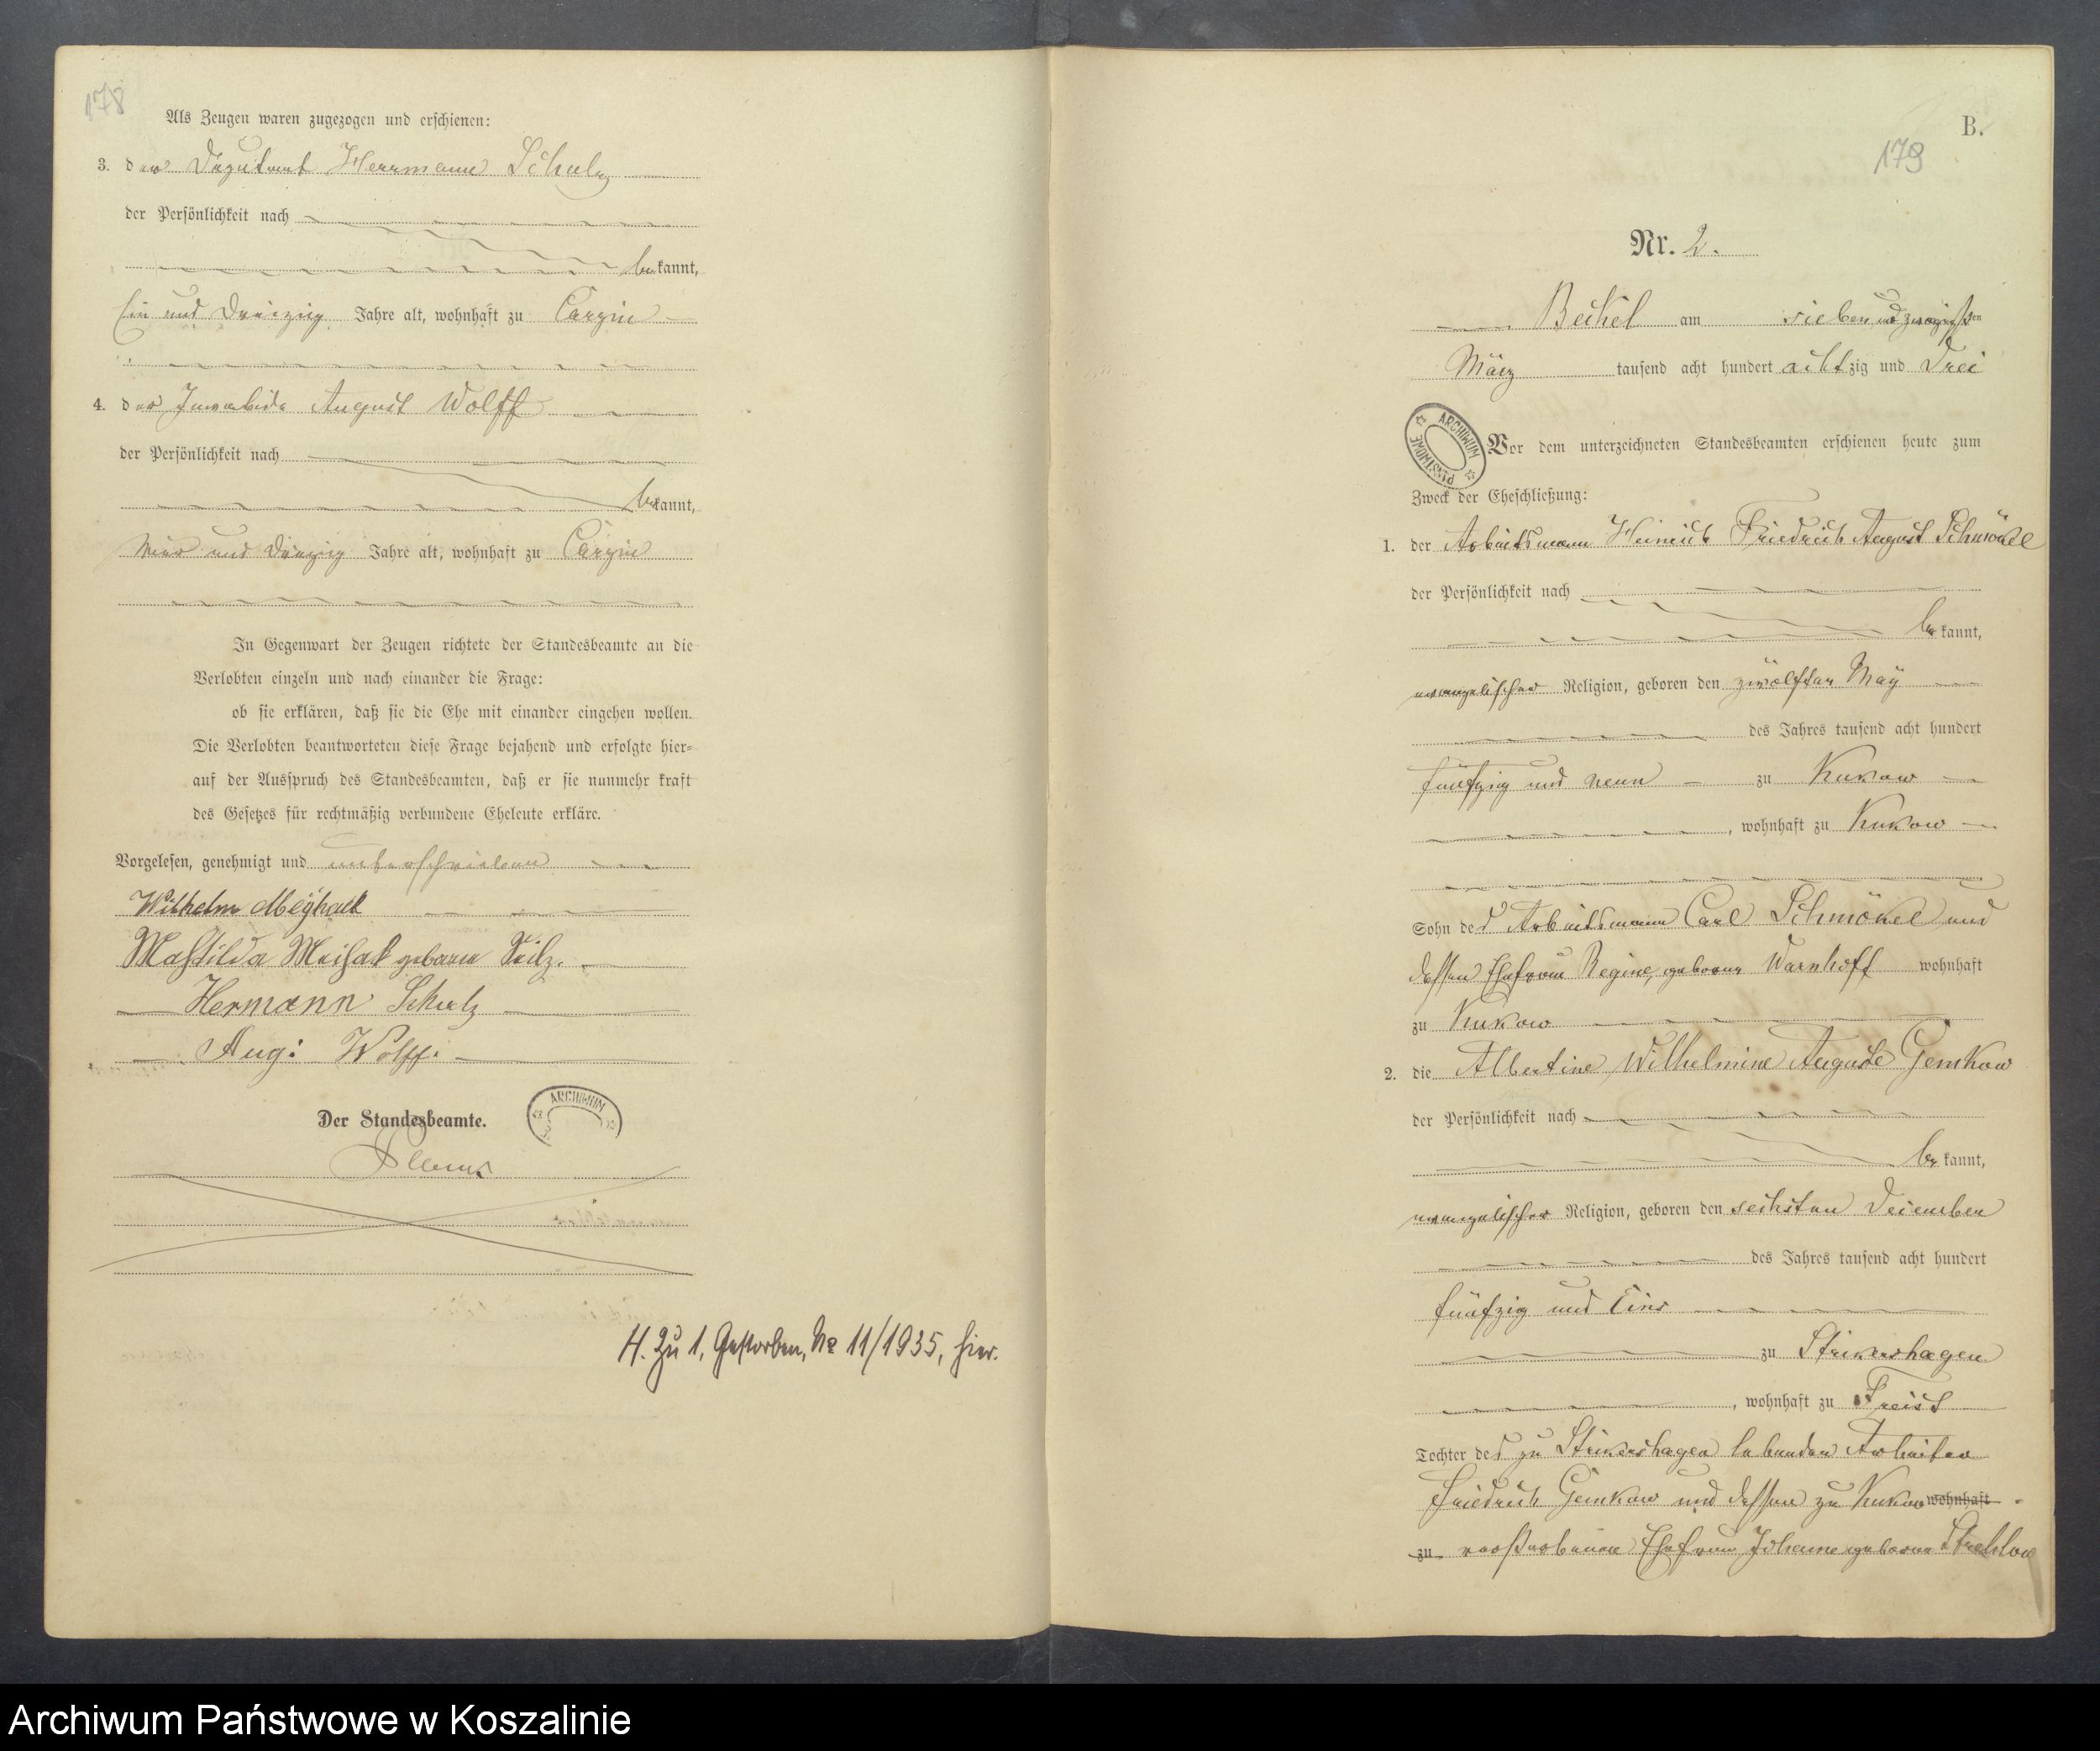 178
Als Zeugen waren zugezogen und erschienen:
3. der Deputant Herrmann Schulz
der Persönlichkeit nach
bekannt,
Ein und Dreizig Jahre alt, wohnhaft zu Carzin
4. der Invalide August Wolff
der Persönlichkeit nach
bekannt,
vier und Dreizig Jahre alt, wohnhaft zu Carzin
In Gegenwart der Zeugen richtete der Standesbeamte an die
Verlobten einzeln und nach einander die Frage:
ob sie erklären, daß sie die Ehe mit einander eingehen wollen.
Die Verlobten beantworteten diese Frage bejahend und erfolgte hier=
auf der Ausspruch des Standesbeamten, daß er sie nunmehr kraft
des Gesetzes für rechtmäßig verbundene Eheleute erkläre.
Vorgelesen, genehmigt und unterschrieben
Wilhelm
Mathilda geboren
Hermann Schulz
Aug: Wolff.
Der Standesbeamte.
ARCHIWUM
H. Zu 1, Gestorben, No 11/1935, hier.
B.
179
Nr. 2.
Beckel am sieben und zwanzigsten
März tausend acht hundert achtzig und Drei
ARCHIWUM PAŃSTWOWE
Vor dem unterzeichneten Standesbeamten erschienen heute zum
Zweck der Eheschließung:
1. der Arbeitsmann Heinrich Friedrich August Schmökel
der Persönlichkeit nach
bekannt,
evangelischer Religion, geboren den zwölften May
des Jahres tausend acht hundert
fünfzig und neun zu Kukow
, wohnhaft zu Kukow
Sohn des Arbeitsmann Carl Schmökel und
dessen Ehefrau Regine, geborne Warnhoff wohnhaft
zu Kukow
2. die Albertine Wilhelmine Auguste Gemkow
der Persönlichkeit nach
bekannt,
evangelischer Religion, geboren den sechsten December
des Jahres tausend acht hundert
fünfzig und Eins
zu Strickershagen
, wohnhaft zu Freist
Tochter des zu Strickershagen lebenden Arbeiter
Friedrich Gemkow und dessen zu Kukow wohnhaft
zu verstorbenen Ehefrau Johanne geborne Strehlow
Archiwum Państwowe w Koszalinie